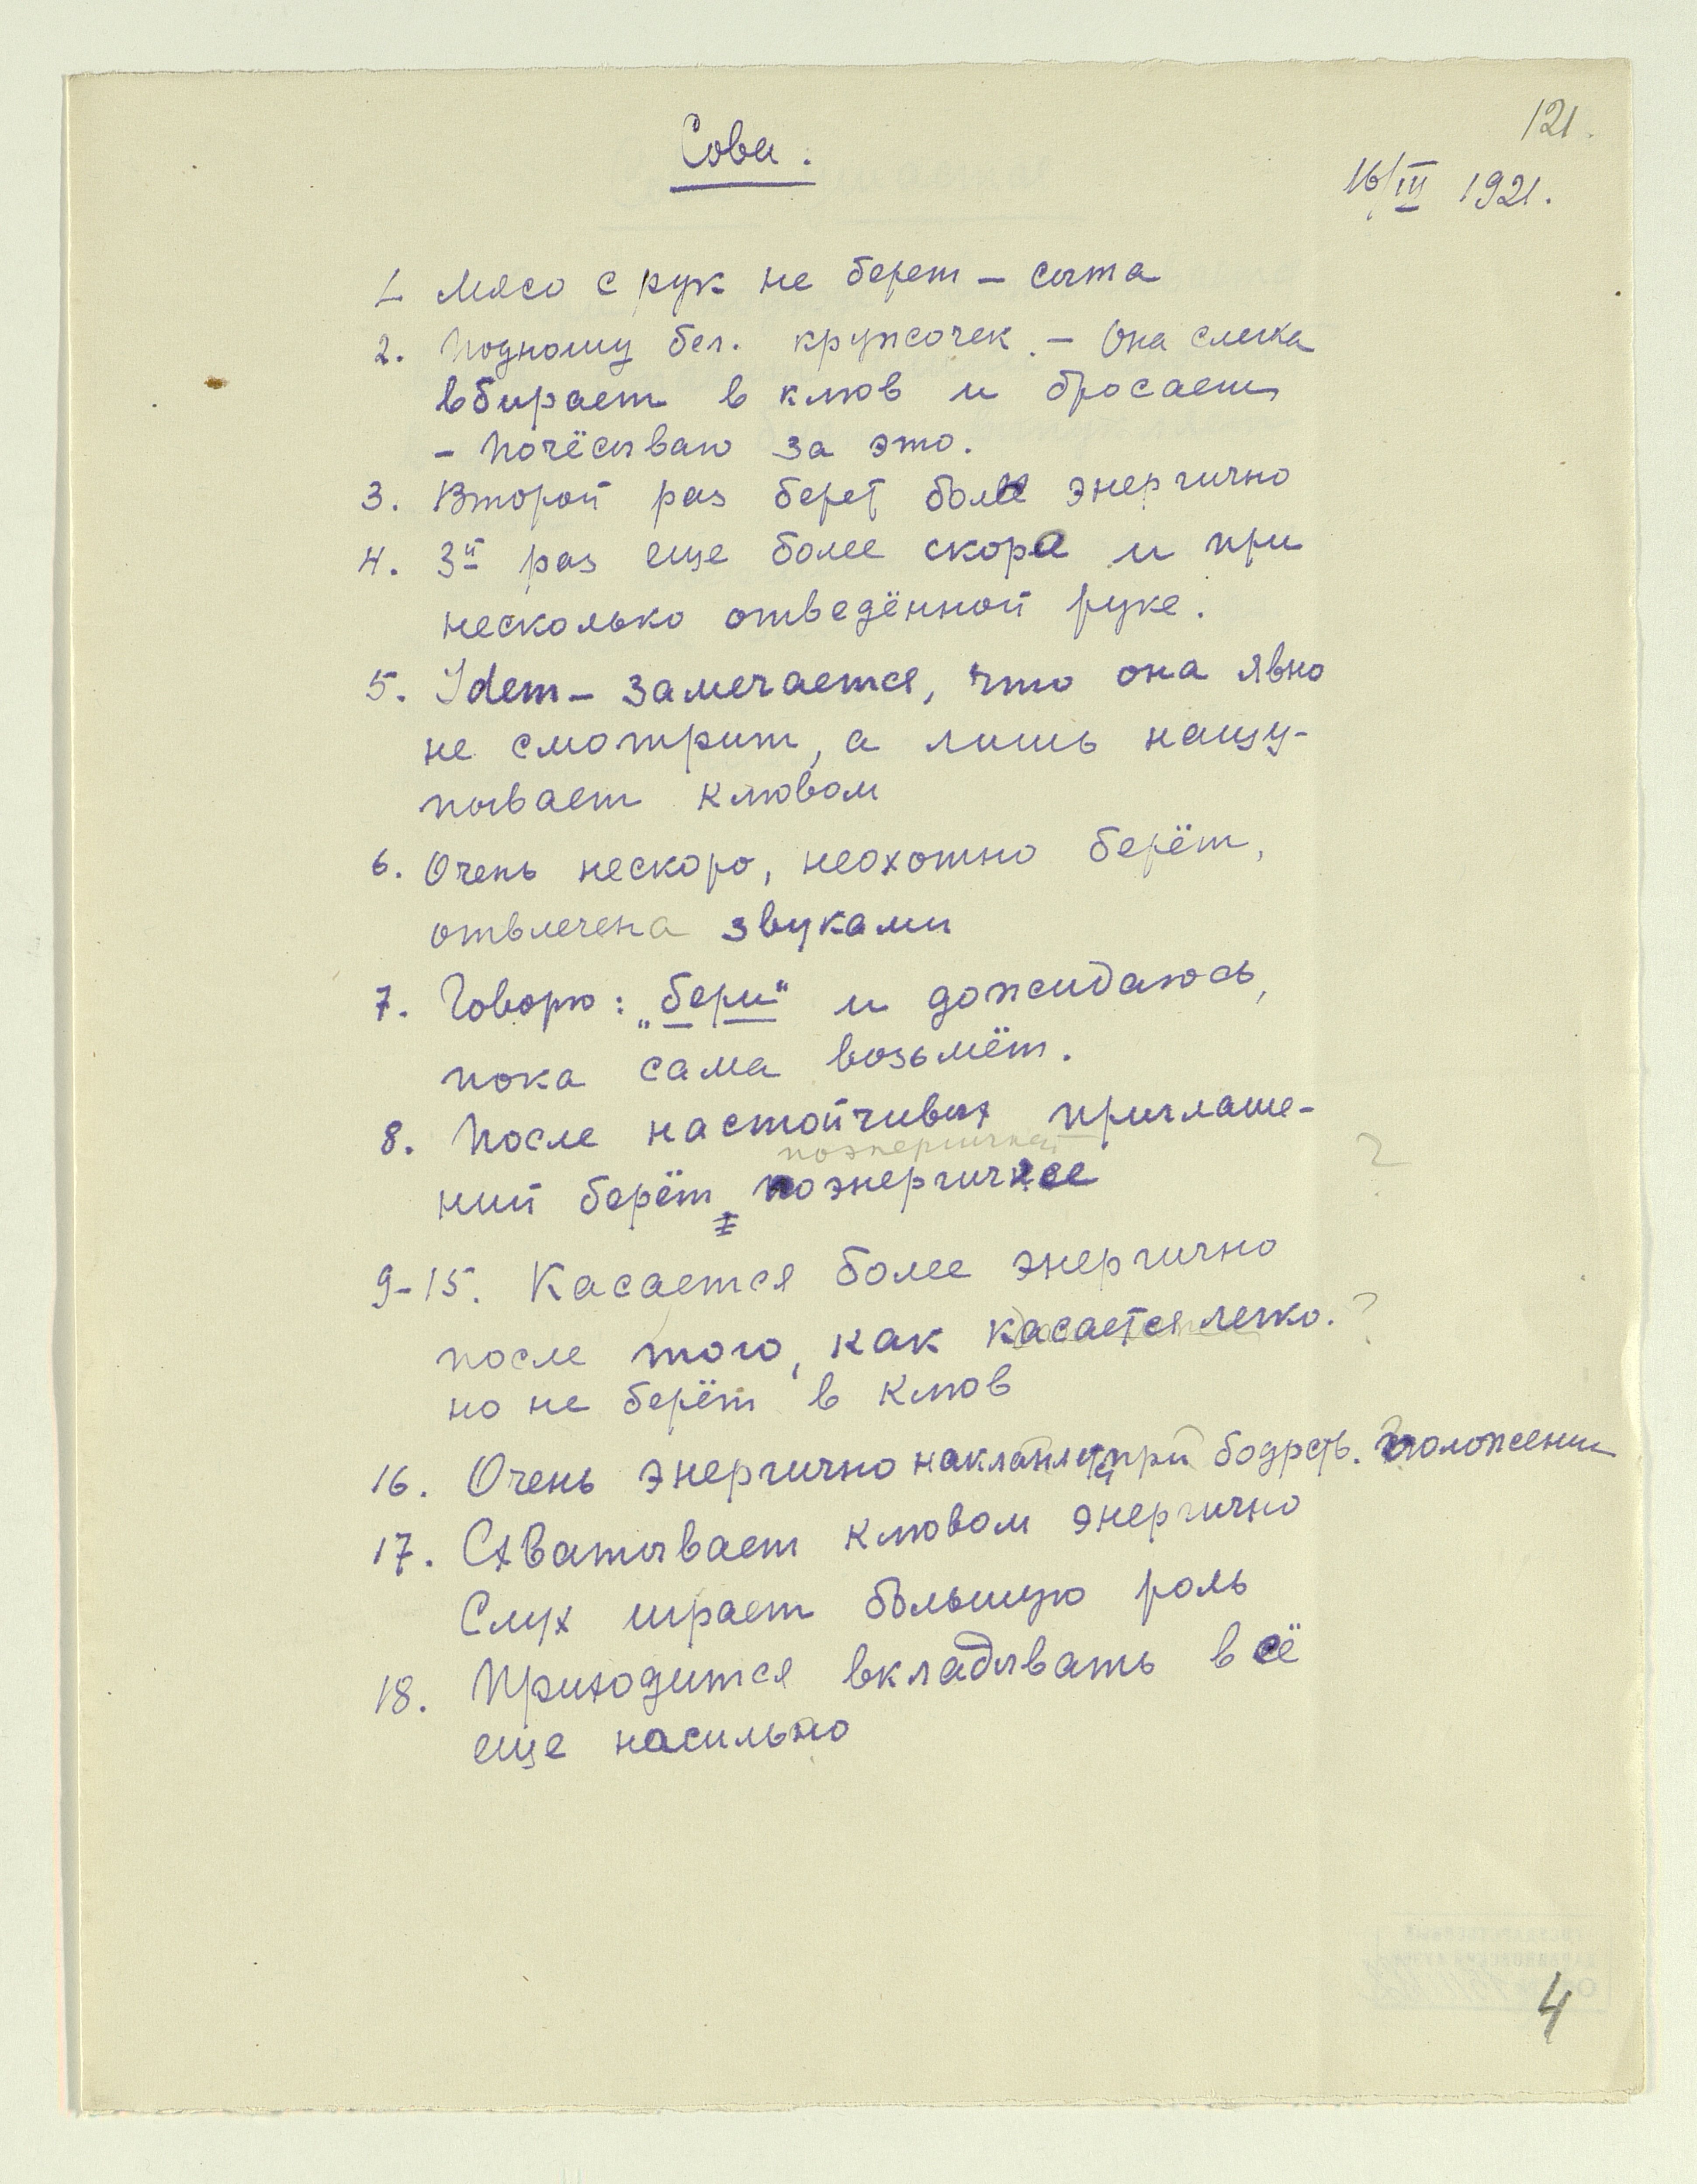 121.
Сова.
16/III 1921.
1. Мясо с рук не берет – сыта
2. Подношу бел. кружочек. – Она слегка
вбирает в клюв и бросает
– Почёсываю за это.
3. Второй раз берет более энергично
4. 3й раз еще более скоро и при
несколько отведённой руке.
5. Idem – замечается, что она явно
не смотрит, а лишь нащу-
пывает клювом
6. Очень нескоро, неохотно берёт,
отвлечена звуками
7. Говорю: „бери" и дожидаюсь,
пока сама возьмёт.
8. После настойчивых приглаше-
ний берёт поэнергичнее
?
9-15. Касается более энергично
после того, как касается легко. ?
но не берёт в клюв
16. Очень энергично при бодрств. положении
17. Схватывает клювом энергично
Слух играет большую роль
18. Приходится вкладывать всё
еще насильно
4